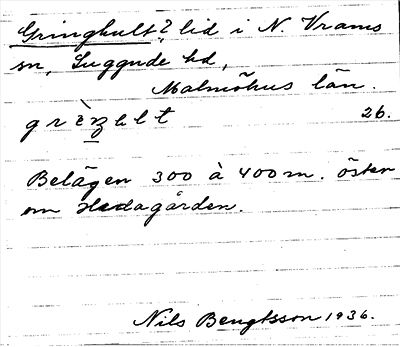 Gringhult? lid i N. Vrams
sn, Luggude hd,
Malmöhus län.
26.
Belägen 300 à 400 m. öster
om Hedagården.
Nils Bengtsson 1936.